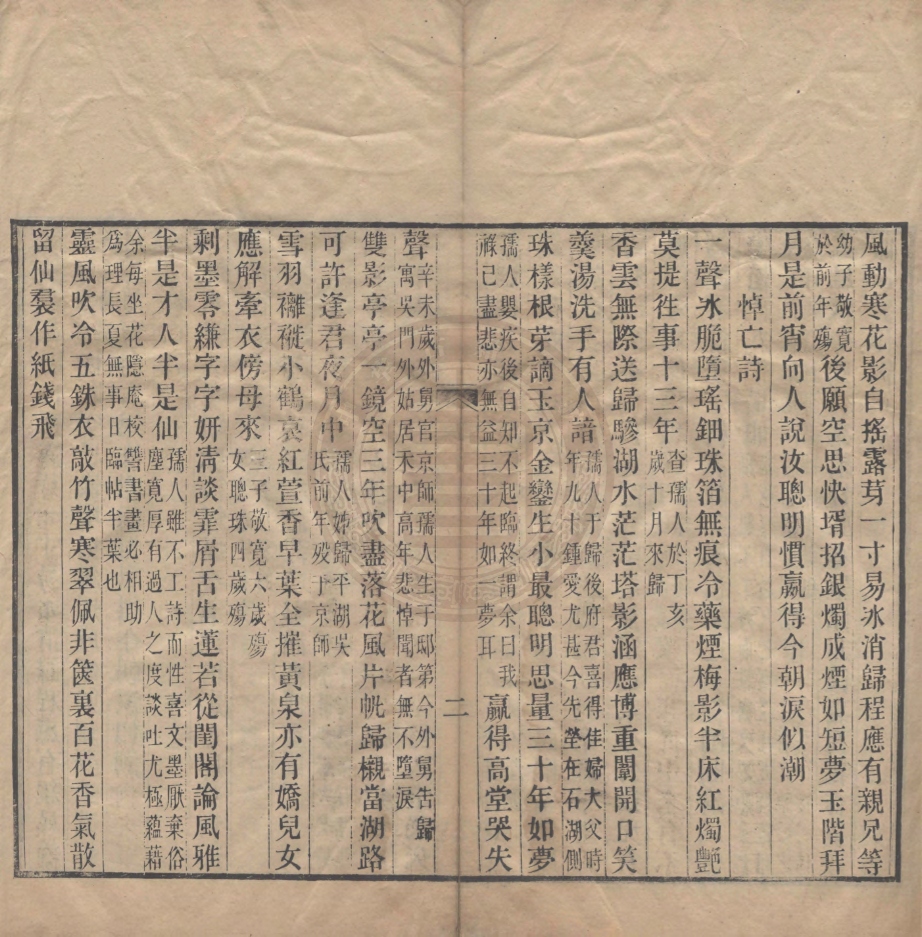 風動寒花影自搖露芽一寸易冰消歸程應有親兄等
幼子敬寬於前年殤後願空思快壻招銀燭成煙如短夢玉階拜
月是前宵向人說汝聰明慣嬴得今朝淚似潮
悼亡詩
一聲冰脆墮瑤鈿珠箔無痕冷藥煙梅影半床紅燭豔
莫提往事十三年查孺人於丁亥歲十月來歸
香雲無際送歸驂湖水茫茫塔影涵應博重闈開口笑
羹湯洗手有人諳孺人于歸後府君喜得佳婦大父時年九十鍾愛尤甚今先塋在石湖側
珠樣根芽謫玉京金鑾生小最聰明思量三十年如夢
孺人嬰疾後自知不起臨終謂余曰我祿已盡悲亦無益三十年如一夢耳嬴得高堂哭失
二
聲辛未歲外舅官京師孺人生于邸第今外舅告歸寓吳門外姑居禾中高年悲悼聞者無不墮淚
雙影亭亭一鏡空三年吹盡落花風片帆歸櫬當湖路
可許逢君夜月中孺人姊歸平湖吳氏前年歿于京師
雪羽褵褷小鶴哀紅萱香早葉全摧黃泉亦有嬌兒女
應解牽衣傍母來三子敬寬六歲殤女聰珠四歲殤
剩墨零縑字字妍淸談霏屑舌生蓮若從閨閣論風雅
半是才人半是仙孺人雖不工詩而性喜文墨厭棄俗塵寬厚有過人之度談吐尤極蘊藉
余每坐花隱庵校讐書畫必相助爲理長夏無事日臨帖半葉也
靈風吹冷五銖衣敲竹聲寒翠佩非篋裏百花香氣散
留仙裙作紙錢飛